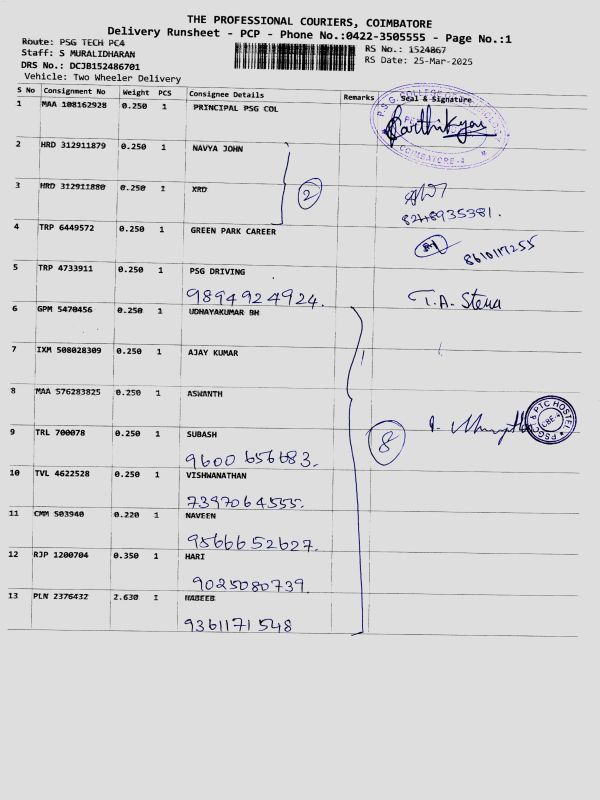 THE PROFESSIONAL COURIERS, COIMBATORE
Delivery Runsheet - PCP - Phone No.:0422-3505555 - Page No.:1
Route: PSG TECH PC4
Staff: S MURALIDHARAN
DRS No.: DCJB152486701
Vehicle: Two Wheeler Delivery
RS No.: 1524867
RS Date: 25-Mar-2025
S No Consignment No Weight PCS Consignee Details Remarks Seal & Signature
1 MAA 108162928 0.250 1 PRINCIPAL PSG COL
COIMBATORE-4
2 HRD 312911879 0.250 1 NAVYA JOHN
2
3 HRD 312911880 0.250 1 XRD
8248935381.
4 TRP 6449572 0.250 1 GREEN PARK CAREER
8610117255
5 TRP 4733911 0.250 1 PSG DRIVING
9894924924. T.A. Stena
6 GPM 5470456 0.250 1 UDHAYAKUMAR BH
7 IXM 508028309 0.250 1 AJAY KUMAR
8 MAA 576283825 0.250 1 ASWANTH
8
PSGCT & PTC HOSTEL
CBE-4
9 TRL 700078 0.250 1 SUBASH
9600 656683.
10 TVL 4622528 0.250 1 VISHWANATHAN
7397064555.
11 CMM 503940 0.220 1 NAVEEN
9566652627.
12 RJP 1200704 0.350 1 HARI
9025080739.
13 PLN 2376432 2.630 1 HABEEB
9361171548